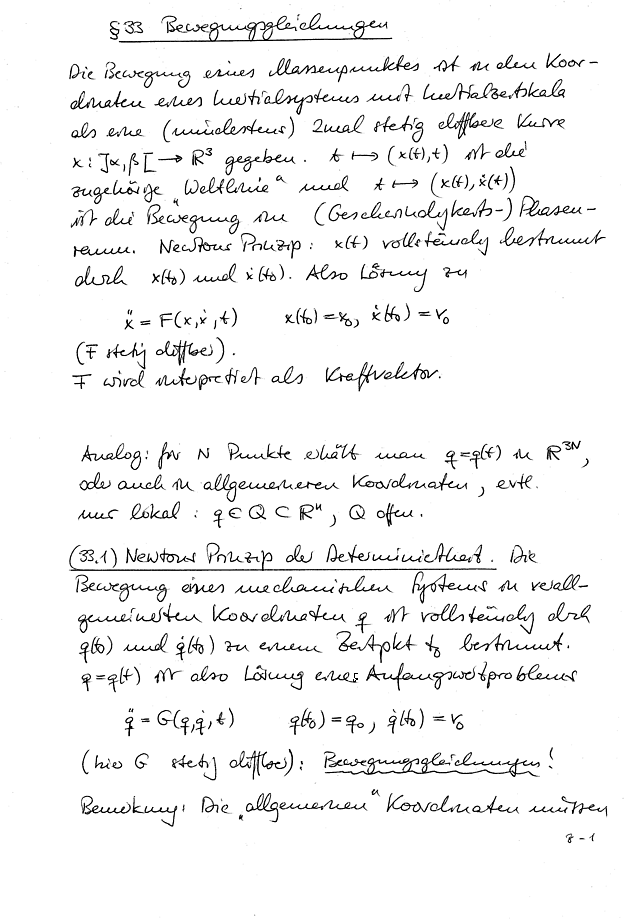 § 33 Bewegungsgleichungen
Die Bewegung eines Massenpunktes ist in den Koor-
dinaten eines Inertialsystems mit Inertialzeitskala
als eine (mindestens) 2mal stetig diffbare Kurve
x : ]α,β[ → ℝ³ gegeben. t ↦ (x(t),t) ist die
zugehörige „Weltlinie“ und t ↦ (x(t),ẋ(t))
ist die Bewegung im (Geschwindigkeits-) Phasen-
raum. Newtons Prinzip : x(t) vollständig bestimmt
durch x(t₀) und ẋ(t₀). Also Lösung zu
ẍ = F(x,ẋ,t) x(t₀)=x₀, ẋ(t₀)=v₀
(F stetig diffbar).
F wird interpretiert als Kraftvektor.
Analog: für N Punkte erhält man q=q(t) in ℝ³ᴺ,
oder auch in allgemeineren Koordinaten, evtl.
nur lokal : q ∈ Q ⊂ ℝⁿ, Q offen.
(33.1) Newtons Prinzip der Determiniertheit. Die
Bewegung eines mechanischen Systems in verall-
gemeinerten Koordinaten q ist vollständig durch
q(t₀) und q̇(t₀) zu einem Zeitpkt t₀ bestimmt.
q=q(t) ist also Lösung eines Anfangswertproblems
q̈ = G(q,q̇,t) q(t₀)=q₀, q̇(t₀)=v₀
(hier G stetig diffbar): Bewegungsgleichungen!
Bemerkung: Die „allgemeinen“ Koordinaten müssen
8-1